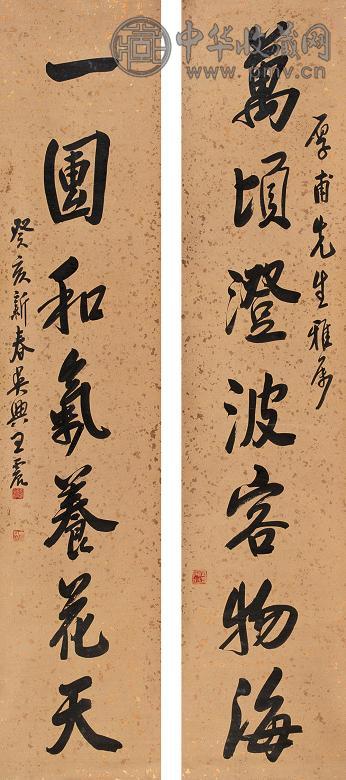 中华收藏网
www.pmv.cn
厚甫先生雅属
萬頃澄波容物海
一團和氣養花天
癸亥新春吳興王震